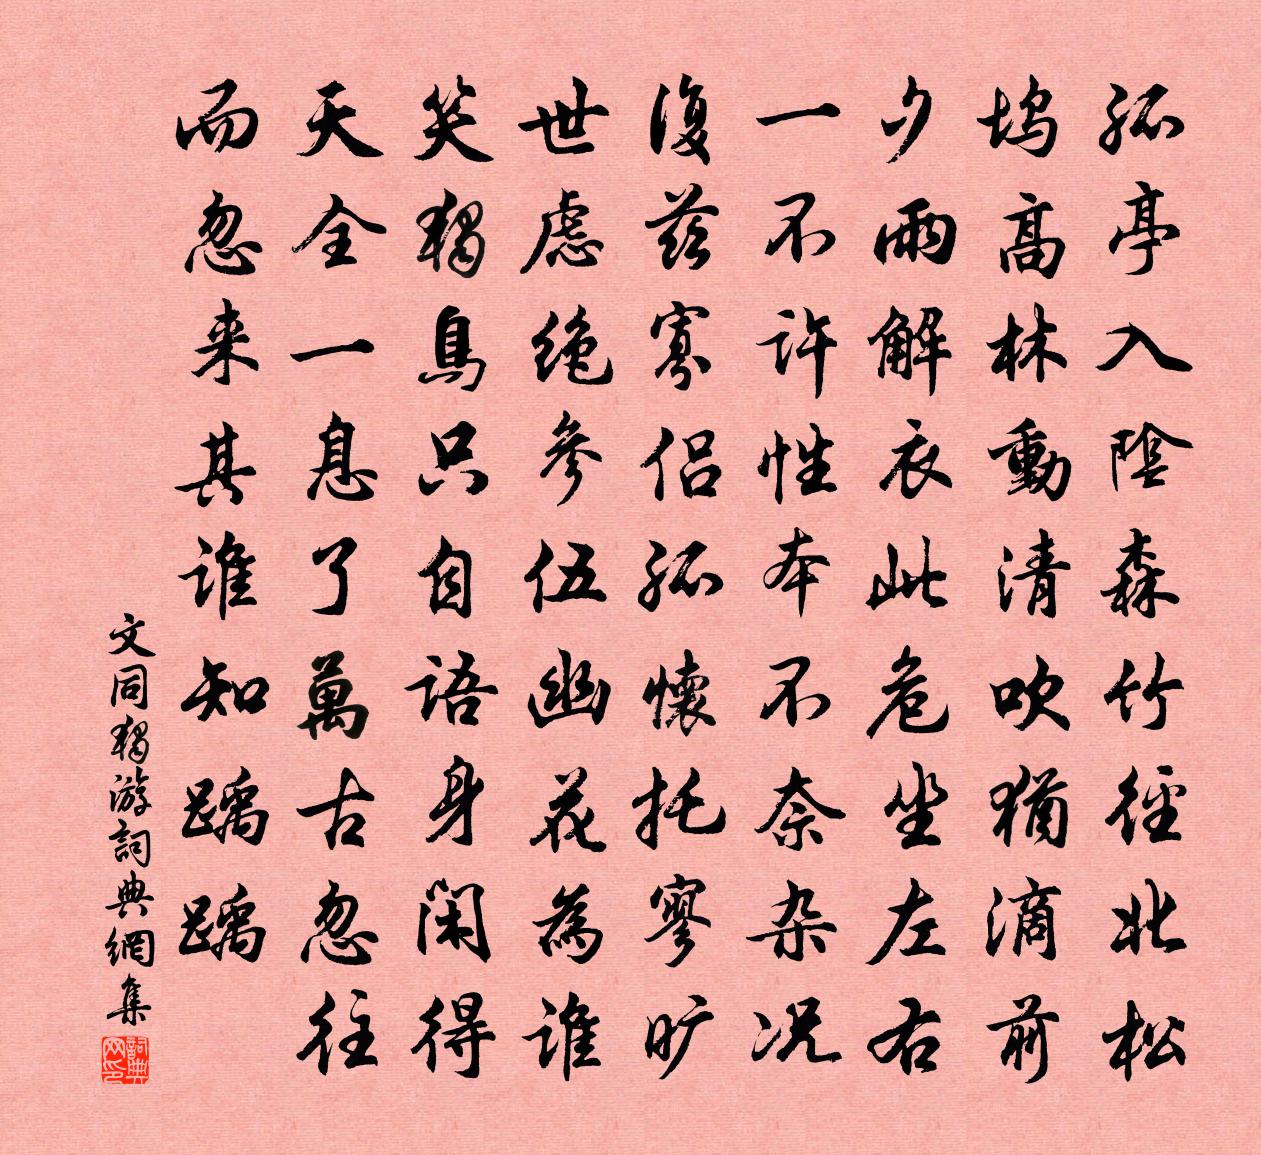 孤亭入陰森竹徑北松
塢高林動清吹猶滴前
夕雨解衣此危坐左右
一不許性本不奈杂况
復茲寡侶孤懷托寥旷
世虑绝參伍幽花為誰
笑獨鳥只自語身閑得
天全一息了萬古忽往
而忽来其誰知踽踽
文同獨游詞典網集